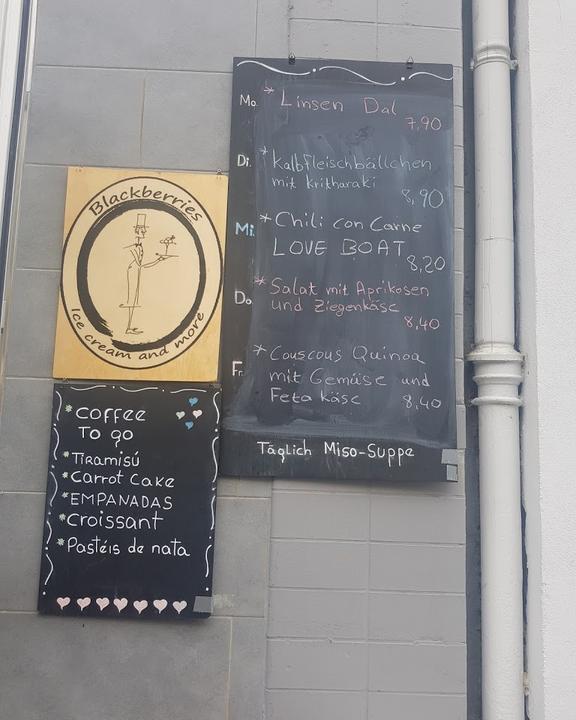 Mo. * Linsen Dal
7,90
Di. * Kalbfleischbällchen
mit kritharaki
8,90
Mi. * Chili con Carne
LOVE BOAT
8,20
Do. * Salat mit Aprikosen
und Ziegenkäse
8,40
Fr. * Couscous Quinoa
mit Gemüse und
Feta käse 8,40
Täglich Miso-Suppe
Blackberries
Ice cream and more
* COFFEE
To go
* Tiramisú
* Carrot Cake
* EMPANADAS
* Croissant
* Pastéis de nata